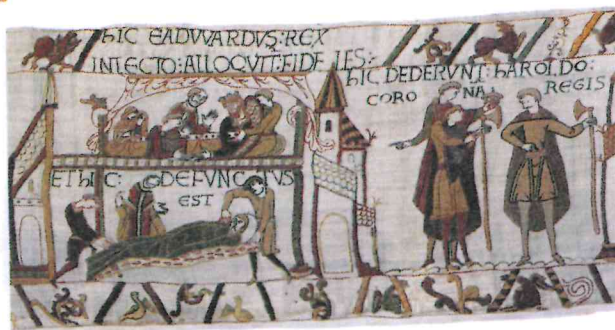 hIC EADVVARDVS:REX
INLECTO:ALLOQVIT:FIDELES:
ET hIC: DEFVNCTVS
EST
hIC DEDERVNT:hAROLDO:
CORONA REGIS